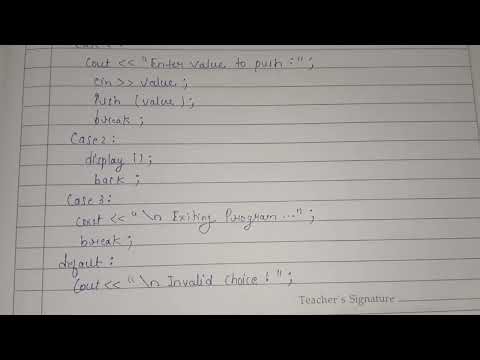 Cout << "Enter value to push :" ;
cin >> value ;
Push (value) ;
break ;
Case 2 :
display () ;
back ;
Case 3 :
Cout << "\n Exiting Program ..." ;
break ;
default :
Cout << "\n Invalid Choice ! " ;
Teacher's Signature